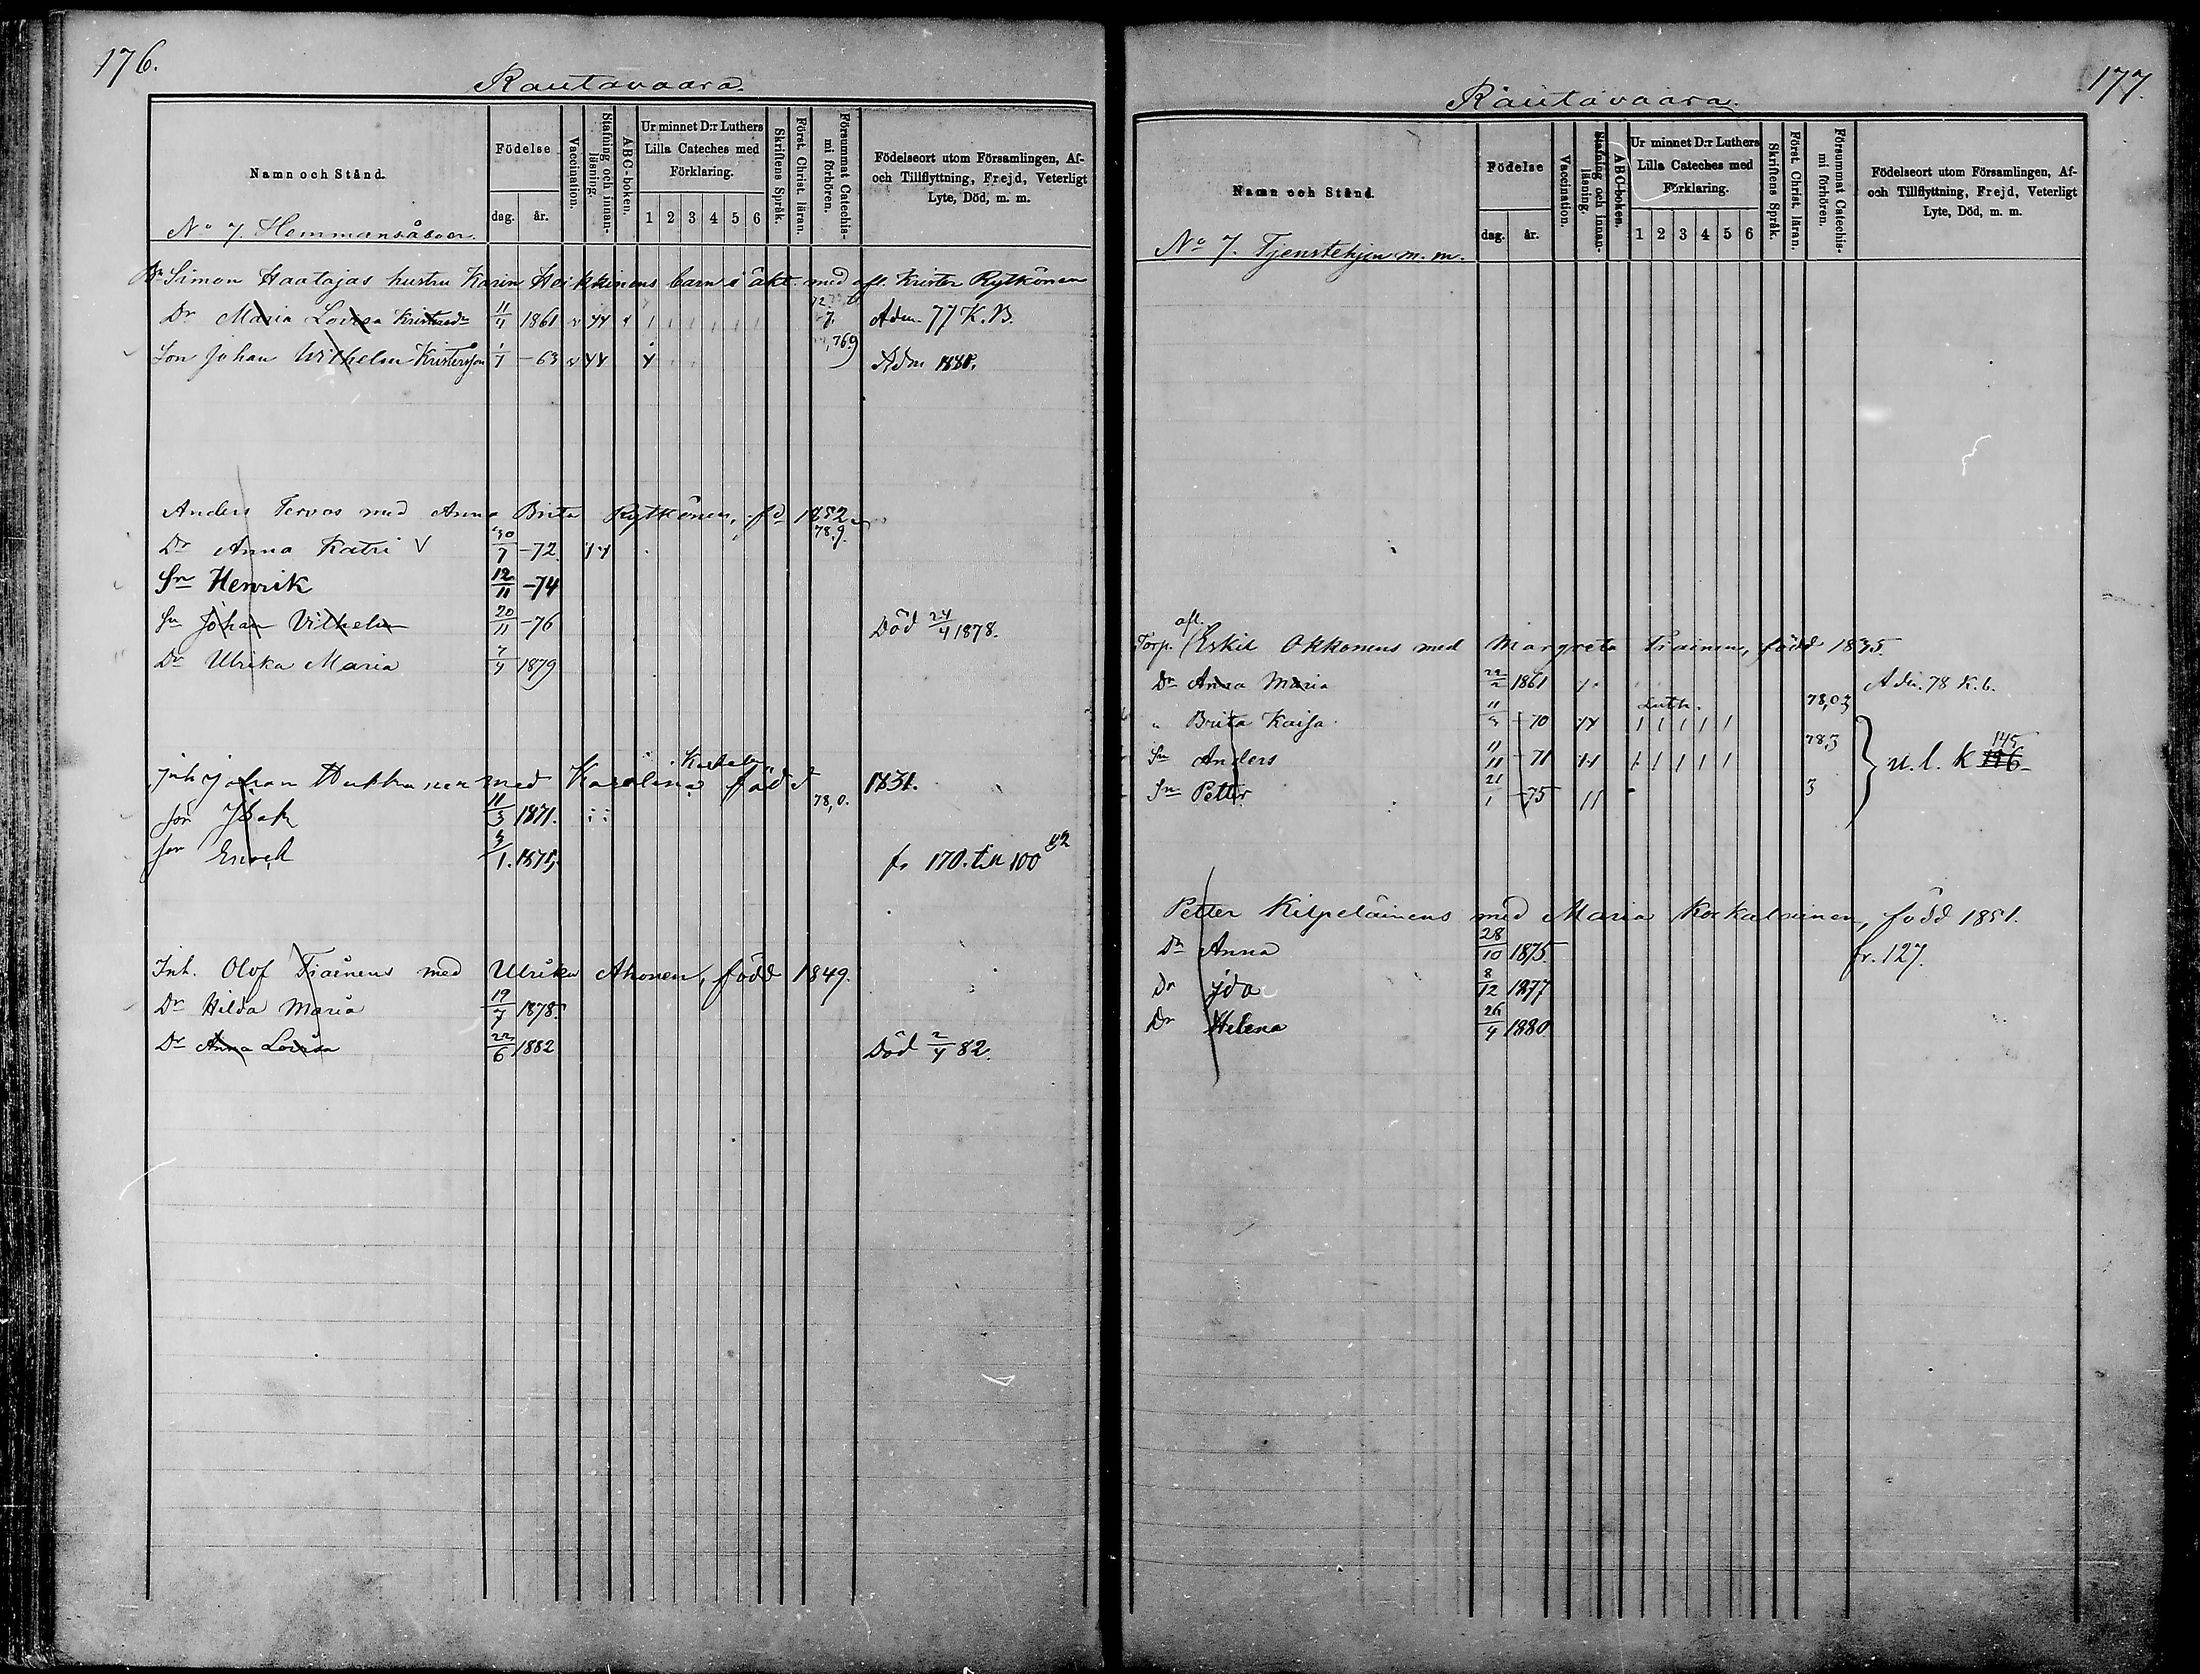 176.
Rautavaara.
Namn och Stånd.
Födelse
dag. år.
Vaccination.
Stafning och innanläsning.
ABC-boken.
Ur minnet D:r Luthers Lilla Cateches med Förklaring.
1 2 3 4 5 6
Skriftens Språk.
Först. Christ. läran.
Försummat Catechismi förhören.
Födelseort utom Församlingen, Af- och Tillflyttning, Frejd, Veterligt Lyte, Död, m. m.
No 7. Hemmansåboer.
Simon Haatajas hustru Karin Heikkinens barn i äkt. med afl. Krister Rytkönen
Dr Maria Lovisa 11/4 1861 7. Adm. 77 K. B.
Son Johan Wilhelm Kristersson 1/1 -63 769 Adm 1880.
Anders Tervos med Anna Brita Rytkönen, fd 1852
Dr Anna Katri V 30/7 -72 78,9.
Sn Henrik 12/11 -74
Sn Johan Vilhelm 20/11 -76 Död 24/4 1878.
Dr Ulrika Maria 7/4 1879
Inh Johan Hukkanen med Karolina född 1831.
Sön Isak 11/3 1871. 78,0.
Son Enoch 3/1. 1875, fr 170. till 100
Inh. Olof Tiainens med Ulrika Ahonen, född 1849.
Dr Hilda Maria 19/7 1878.
Dr Anna Lovisa 22/6 1882 Död 2/4 82.
177
Rautavaara.
Namn och Stånd.
Födelse
dag. år.
Vaccination.
Stafning och innanläsning.
ABC-boken.
Ur minnet D:r Luthers Lilla Cateches med Förklaring.
1 2 3 4 5 6
Skriftens Språk.
Först. Christ. läran.
Försummat Catechismi förhören.
Födelseort utom Församlingen, Af- och Tillflyttning, Frejd, Veterligt Lyte, Död, m. m.
No 7. Tjenstehjon m. m.
afl.
Torp. Eskil Okkonens med Margreta Tiainen, född 1835.
Dr Anna Maria 22/2 1861 Adm. 78 K. b.
" Brita Kaisa -70 Luth. 78,03
Sn Anders 11/11 -71 78,3 n. l. K 145 116
Sn Petter 21/1 -75 3
Petter Kilpeläinens med Maria Korkalainen, född 1851.
Dr Anna 28/10 1875 fr. 127.
Dr Ida 8/12 1877
Dr Helena 26/4 1880